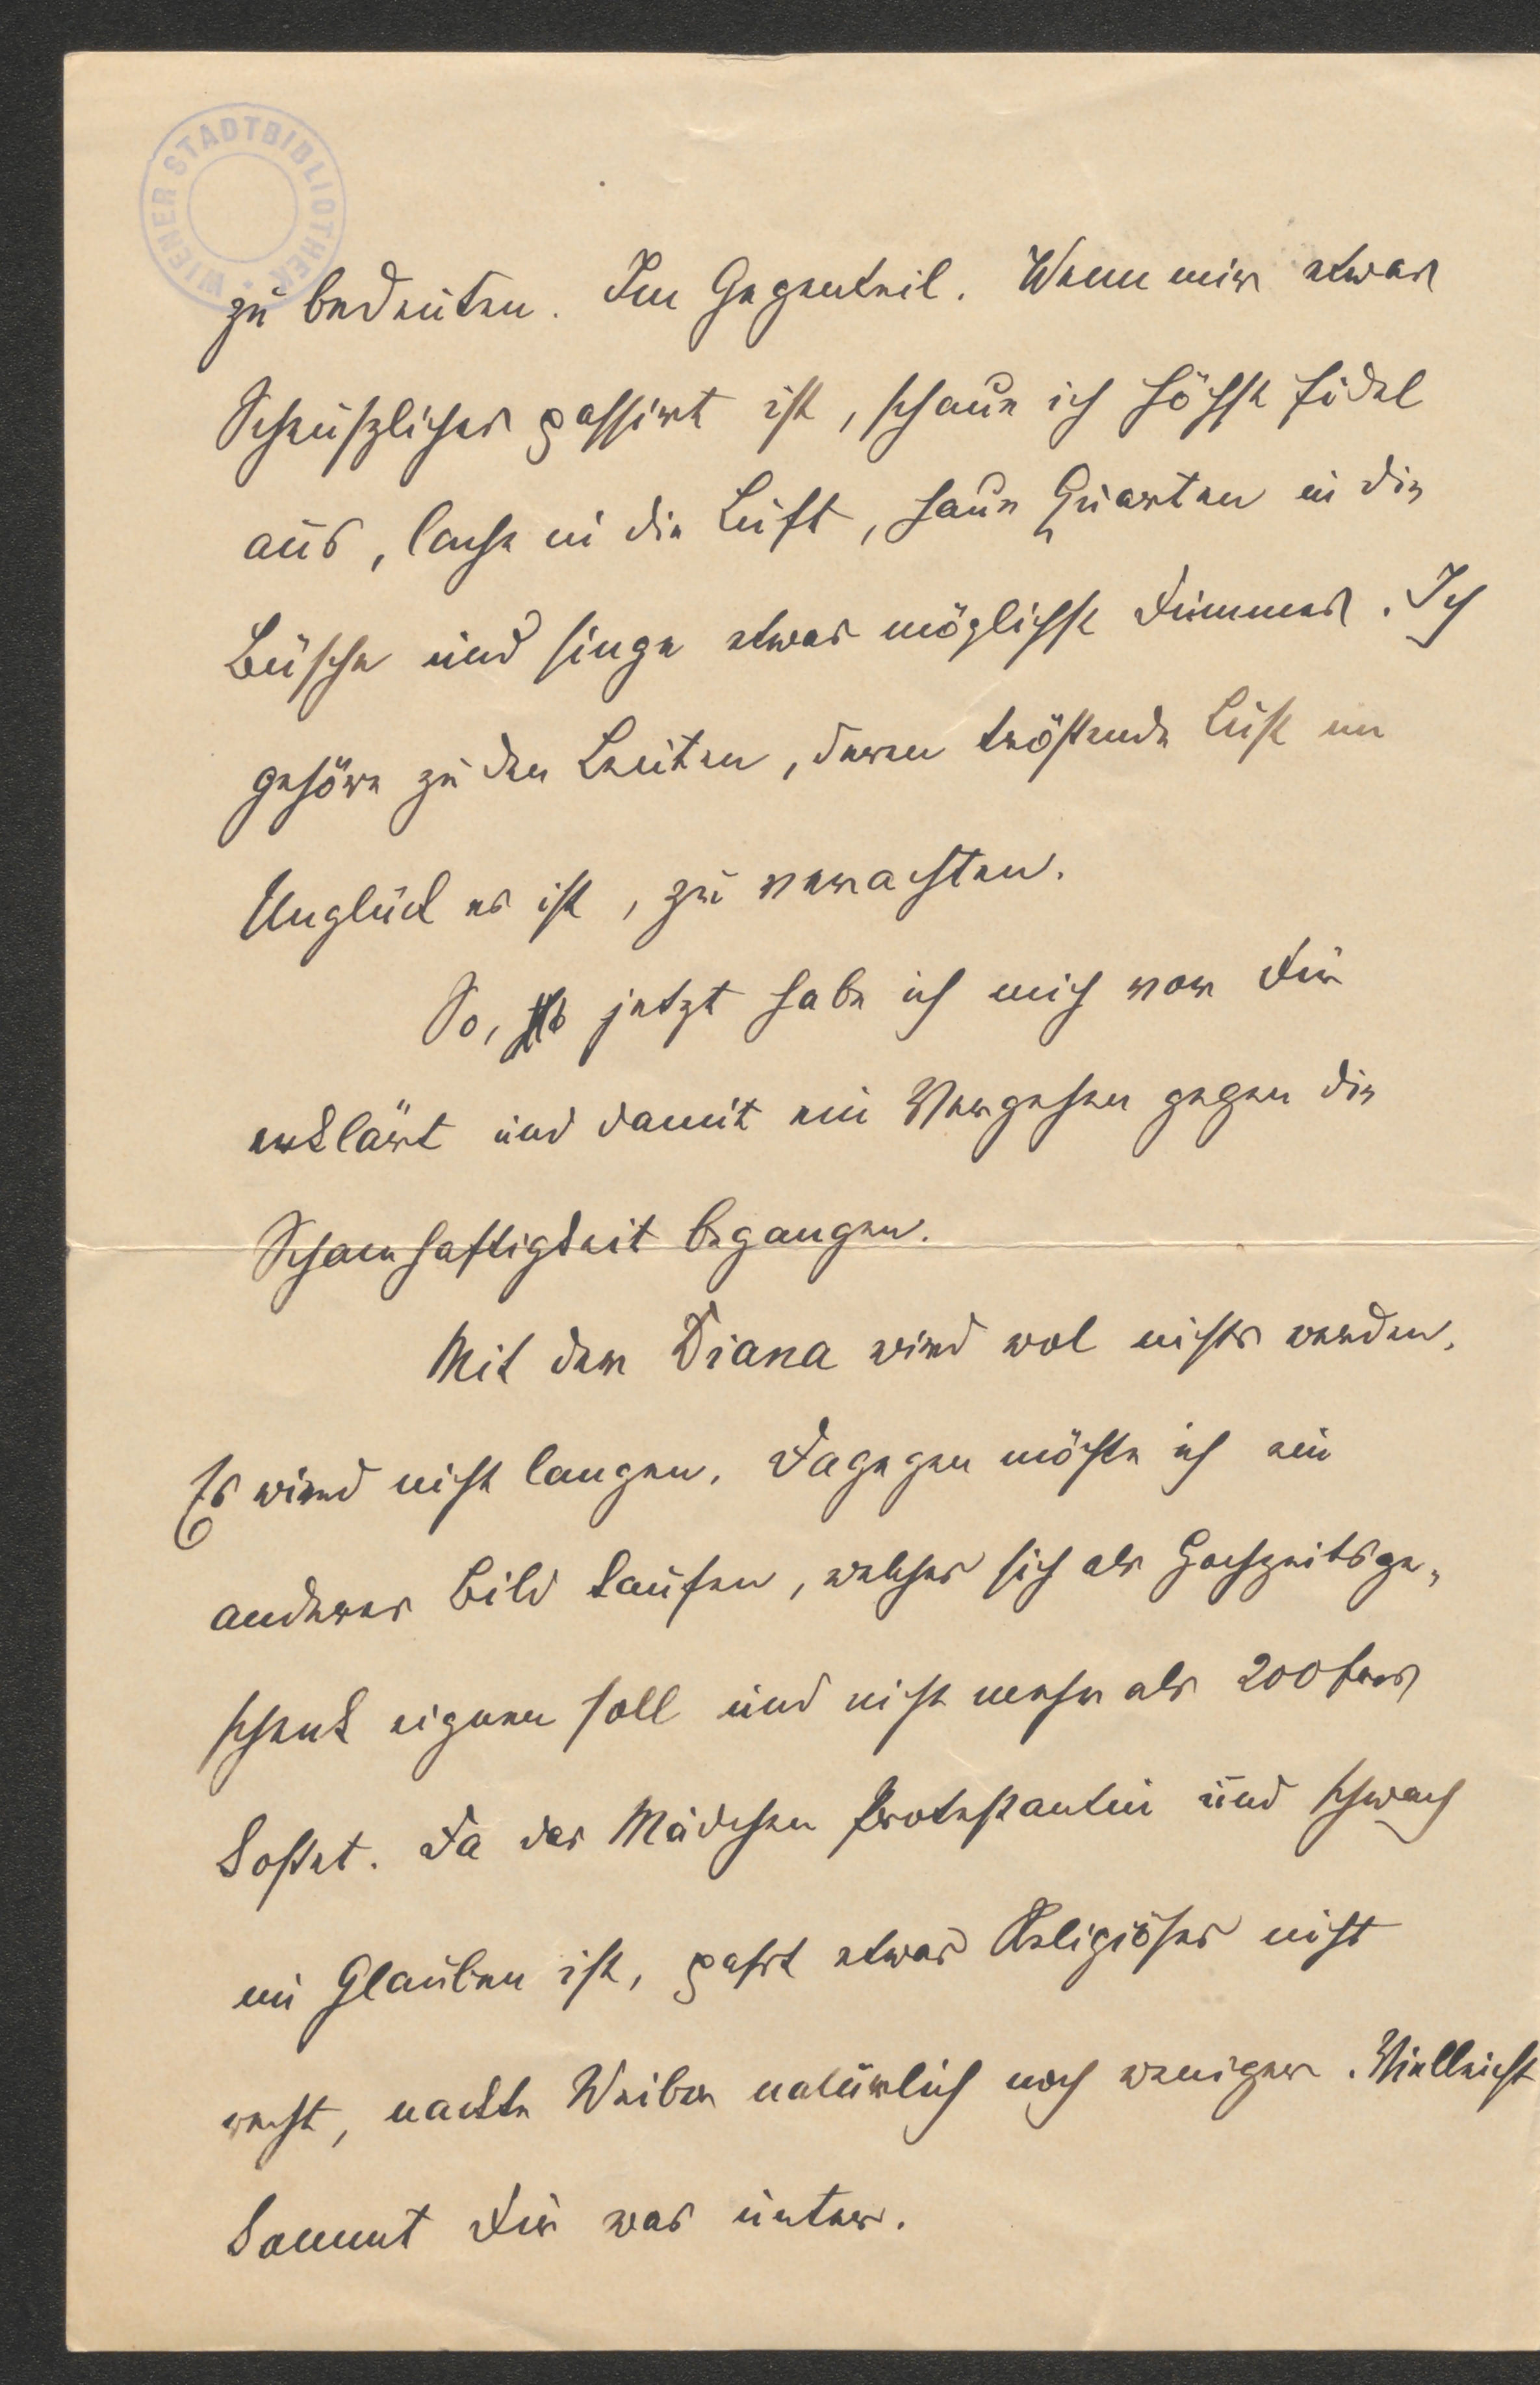 WIENER STADTBIBLIOTHEK
zu bedeuten. Im Gegenteil. Wenn mir etwas
Scheußliches passirt ist, schaue ich höchst fidel
aus, lache in die Luft, haue Quarten in die
Büsche und singe etwas möglichst Dummes. Ich
gehöre zu den Leuten, deren tröstende Lust im
Unglück es ist, zu verachten.
So, jetzt habe ich mich vor Dir
erklärt und damit ein Vergehen gegen die
Schamhaftigkeit begangen.
Mit der Diana wird wol nichts werden.
Es wird nicht langen. Dagegen möchte ich ein
anderes Bild kaufen, welches sich als Hochzeitsge-
schenk eignen soll und nicht mehr als 200 frcs
kostet. Da das Mädchen Protestantin und schwach
im Glauben ist, geht etwas Religiöses nicht
recht, nackte Weiber natürlich noch weniger. Vielleicht
kommt Dir was unter.